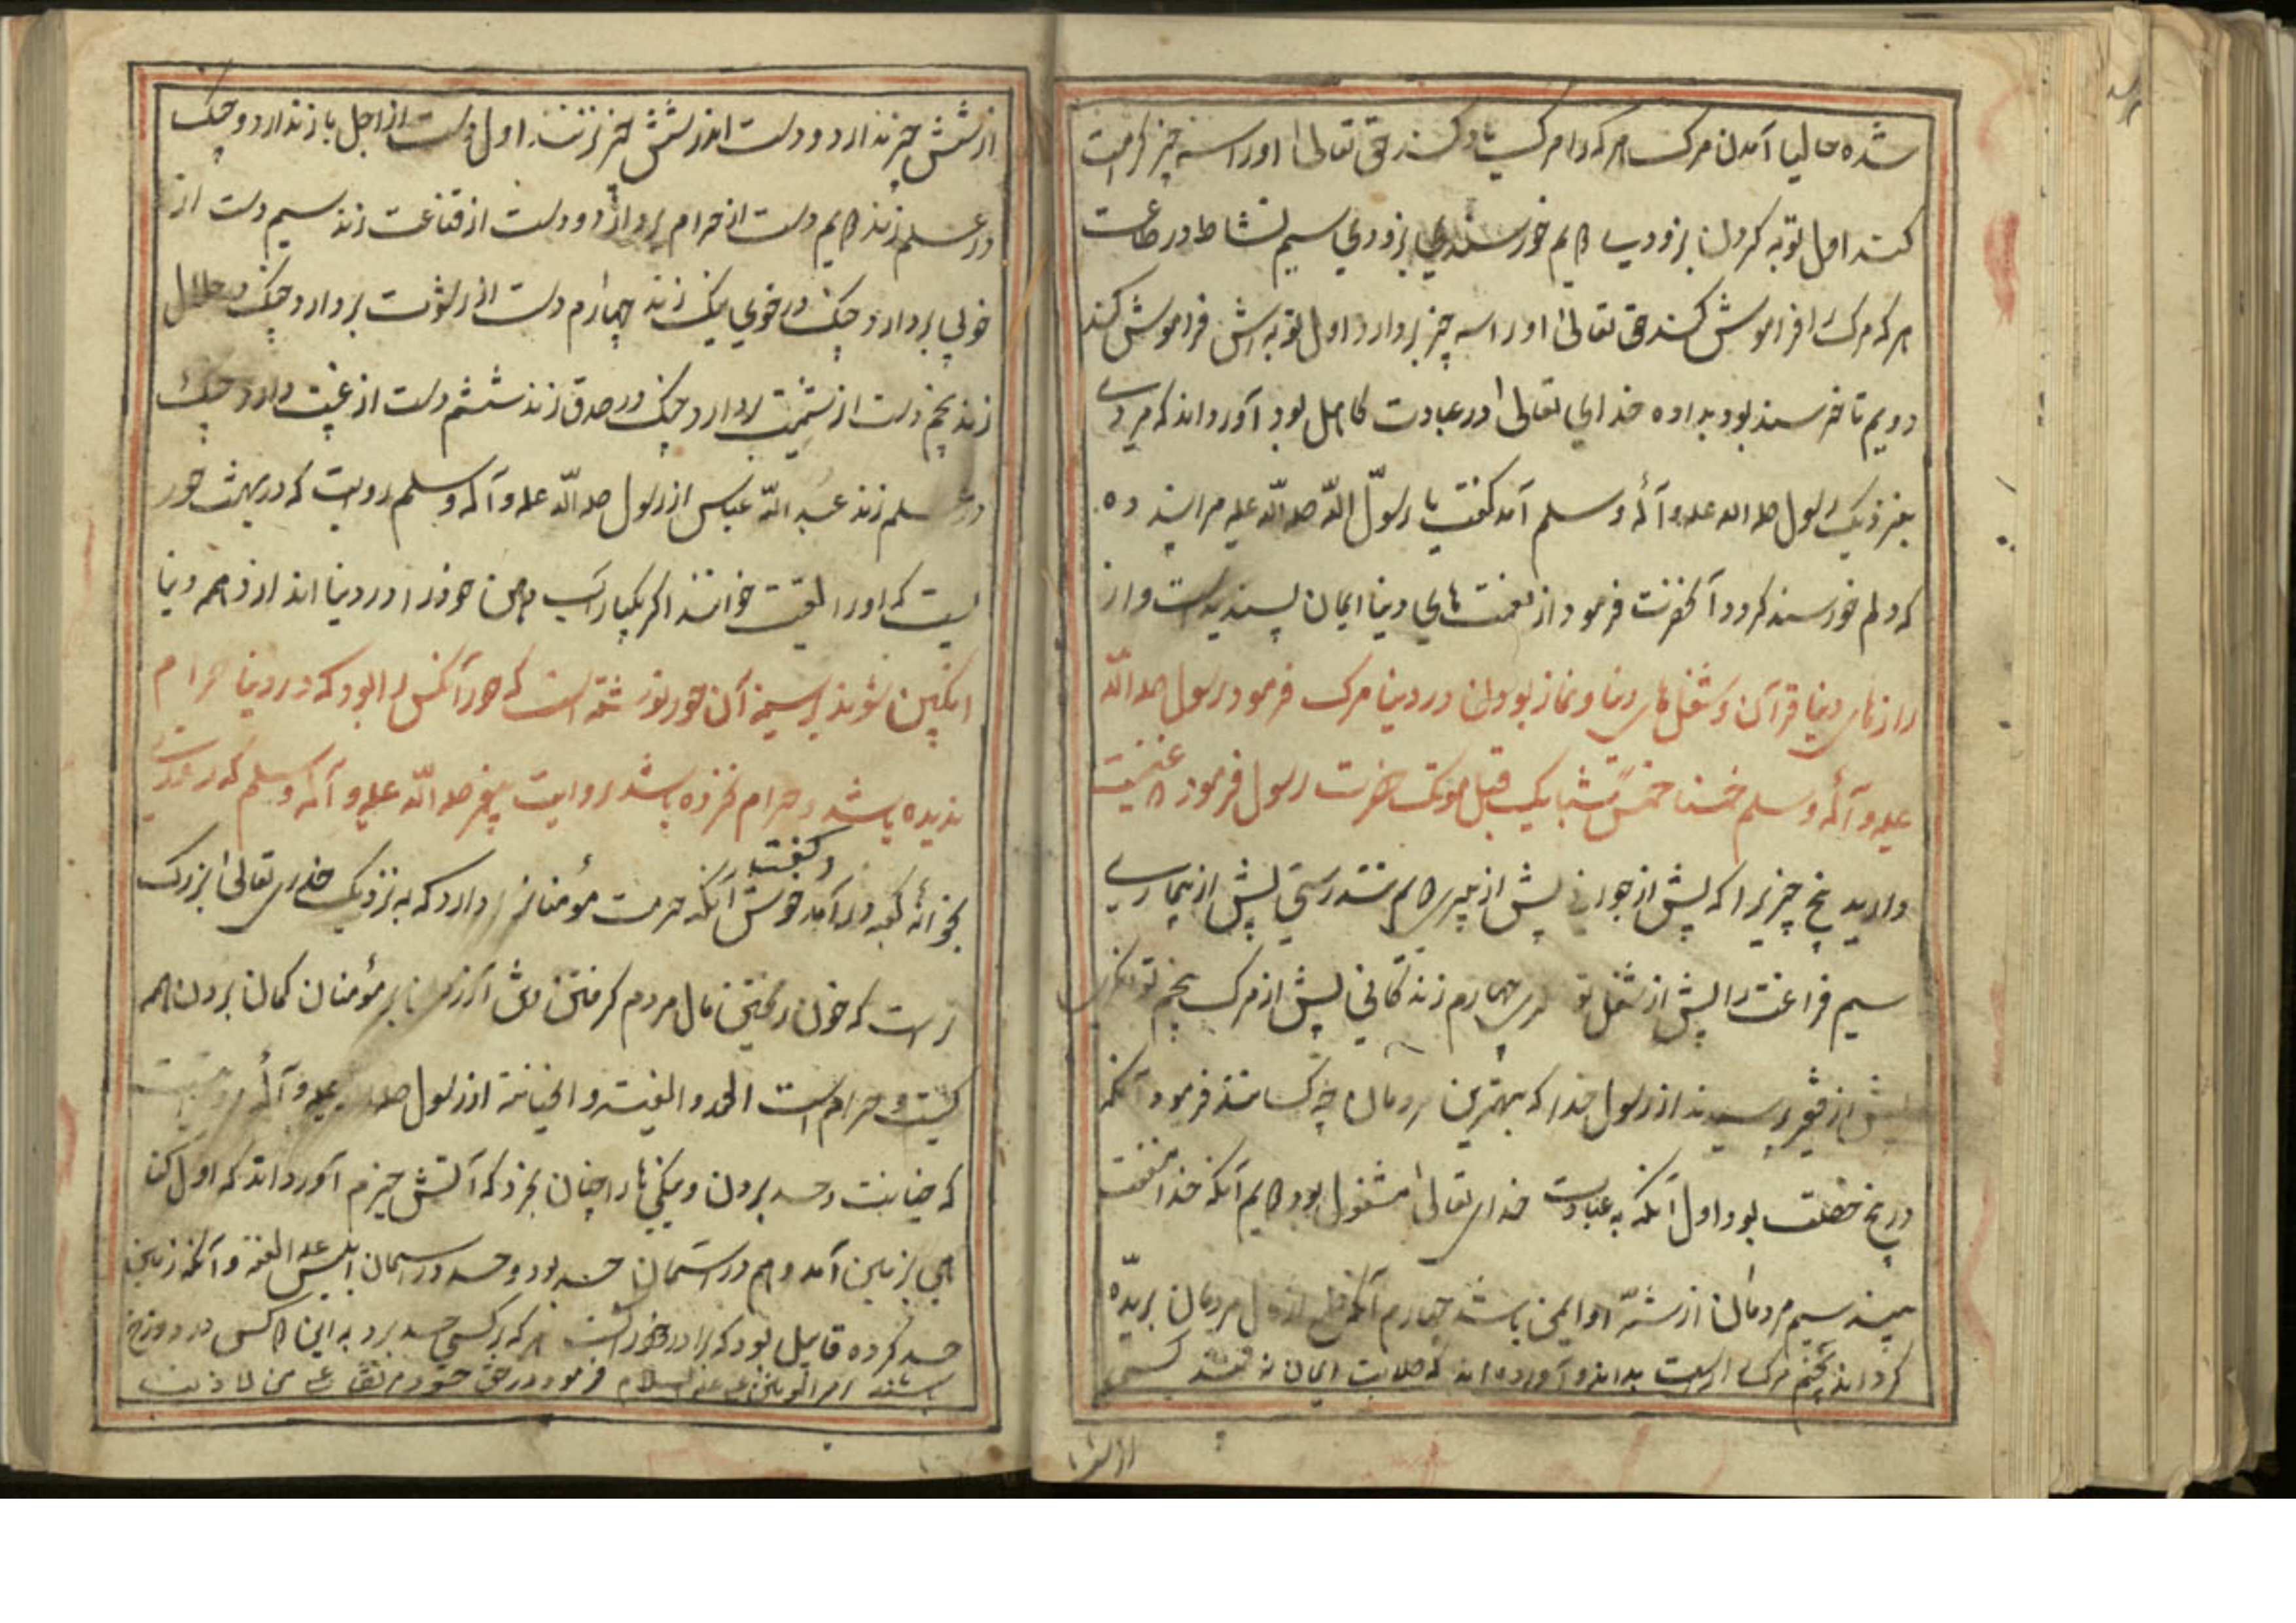 شده حالیا آمدن مرک هر که را مرک یاد کند حق تعالیٰ اورا سه چیز کرامت
کند اول توبه کردن بزودی دویم خورسندی بزودی سیم نشاط در طاعت
هر که مرک را فراموش کند حق تعالیٰ اورا سه چیز بردارد اول توبه اش فراموش کند
دویم تا خرسند بود بداده خدای تعالیٰ در عبادت کاهل بود آورداند که مردی
بنزدیک رسول صلہ اللہ علیہ وآلہ وسلم آمد کفت یا رسول اللّہ صلہ اللّہ علیہ مرا پند ده
که دلم خورسند کردد آنحضرت فرمود از نعمت های دنیا ایمان پسندیدست و از
راز های دنیا قرآن و شغل های دنیا و نماز بودن در دنیا مرک فرمود رسول صلہ اللّہ
علیہ وآلہ وسلم خمسا خمس قبل موتک حضرت رسول فرمود غنیمت
دارید پنج چیز را که پیش از جوانی پیش از پیری دویم تندرستی پیش از بیماری
سیم فراغت را پیش از شغل چهارم زندکانی پیش از مرک پنجم توانکری
پیش از فقیری پرسیدند از رسول خدا که بهترین مردمان چه کسانند فرمود آنکه
در پنج خصلت بود اول آنکه به عبادت خدای تعالیٰ مشغول بود دویم آنکه خدا منفعت
بیند سیم مردمان از شرّ او ایمن باشند چهارم آنکه دل از مردمان بریدّه
کرداند پنجم مرک را بداند و آورده اند که حلاوت ایمان کسی
از شش
از شش چیز ندارد و دست اندر شش چیز نزند اول دست از اجل باز ندارد و چنک
در علم زند دویم دست از حرام بردارد و دست از قناعت زند سیم دست از
خوی بردارد و چنک در خوی نیک زند چهارم دست از رشوت بردارد و چنک در حلال
زند پنجم دست از بردارد و چنک در صدق زند ششم دست از غیبت دارد و چنک
در سلم زند عبد اللّہ عباس از رسول صلہ اللّہ علیہ وآلہ وسلم روایت که در بهشت حور
یست که اورا خوانند اکر یکبار آب دهن خود را در دنیا اندازد همه دنیا
انکبین شوند بر سینه آن حور نوشته است که حور آنکس را بود که در دنیا حرام
ندیده باشد و حرام نخورده باشد روایت پیغمبر صلہ اللّہ علیہ وآلہ وسلم که روزی
بخوانۂ کعبه در آمد و کفت خوش آنکه حرمت مؤمنان را دارد که به نزدیک خدای تعالیٰ بزرک
تر است که خون ریختن مال مردم کرفتن بر مؤمنان کمان بردن همه
یست و حرام است الحسد والغیبته والخیانته از رسول صلہ علیہ وآلہ روایت
که خیانت و حسد بردن و نیکی ها را چنان بخورد که آتش هیزم آورداند که اول کنا
هی بزمین آمد و هم در آسمان حسد بود و حسد در آسمان ابلیس علیہ اللعنة و آنکه زمین
حسد کرده قابیل بود که برادر خود را کشت هر که بر کسی حسد برد به این هر کس در دوزخ
باشند امیر المؤمنین علی علیه السلام فرمود در حق حسود